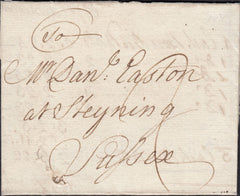 To
Mr Danl. Easton
at Steyning
Sussex